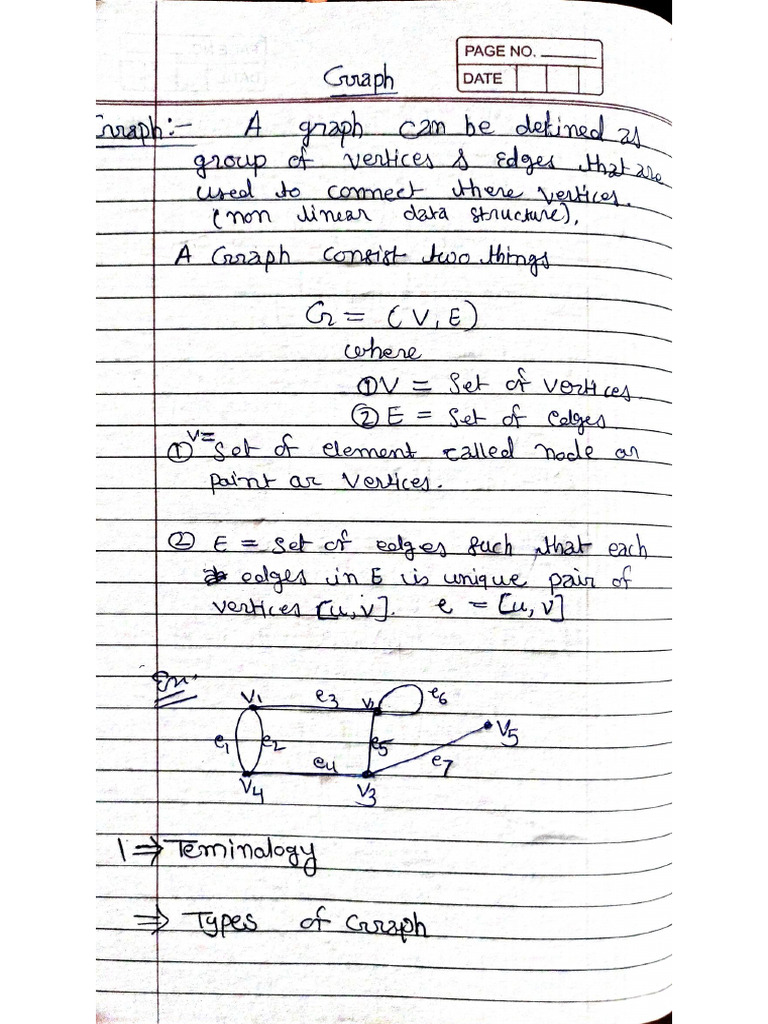 PAGE NO.
DATE
Graph
Graph:- A graph can be defined as
group of vertices & edges that are
used to connect there vertices.
(non linear data structure),
A Graph consist two things
G = (V, E)
where
① V = Set of vertices
② E = Set of edges.
V=
① Set of element called node or
paint ar vertices.
② E = set of edges such that each
edges in E is unique pair of
vertices [u, v]. e = [u, v]
Ex:-
V1 e3 V2 e6
e1 e2 e5 V5
e4 e7
V4 V3
1 ⇒ Teminalogy
⇒ Types of Graph